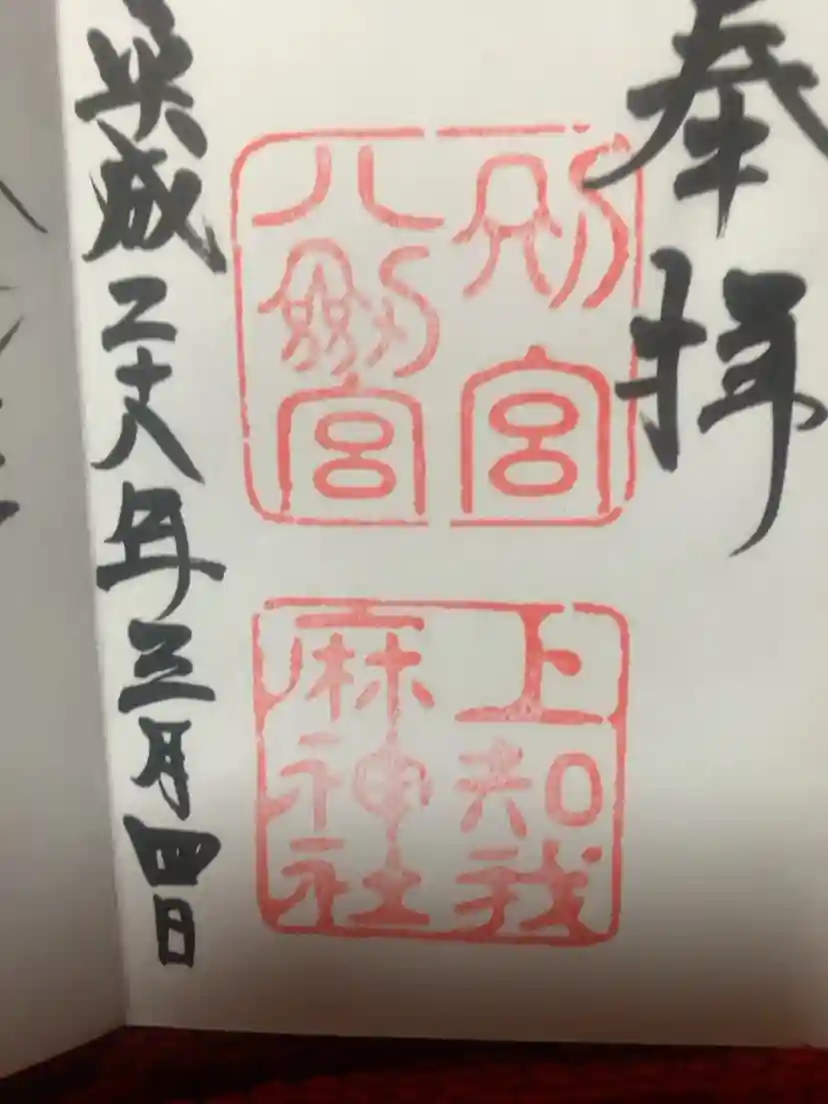 奉拝
別宮
八剱宮
上知我
麻神社
平成二十八年三月四日